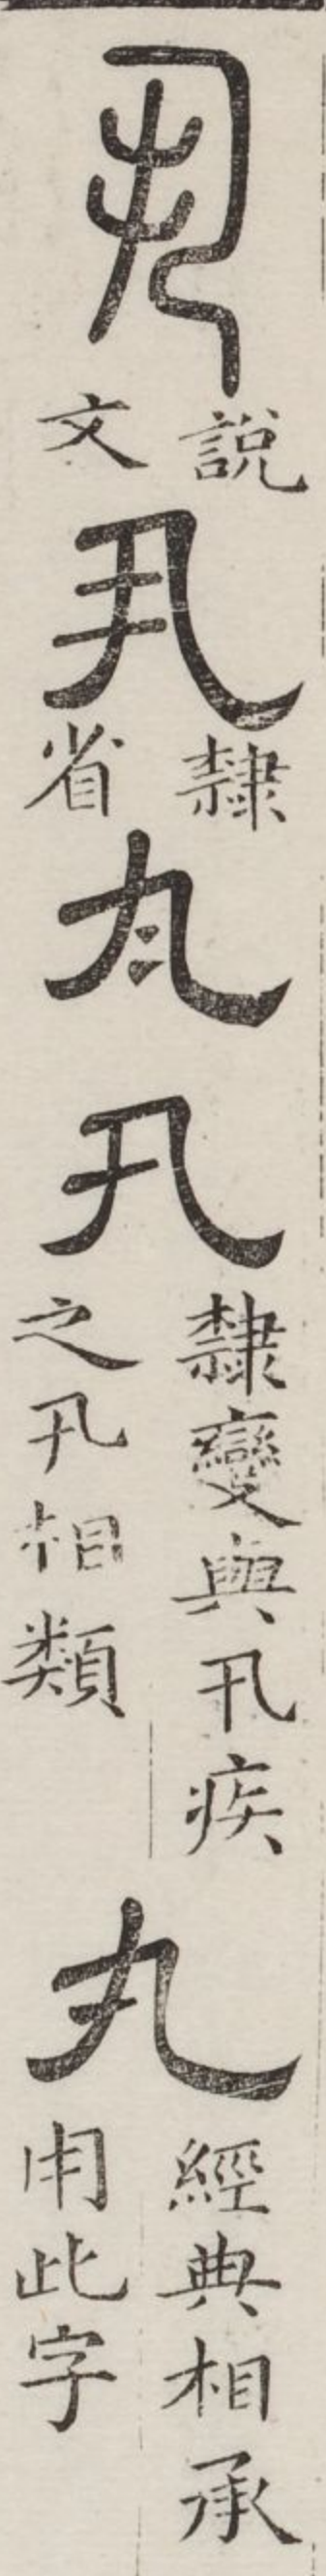 丮
說
文
丮
隸
省
卂
隸變與卂疾
之卂相類
丸
經典相承
用此字